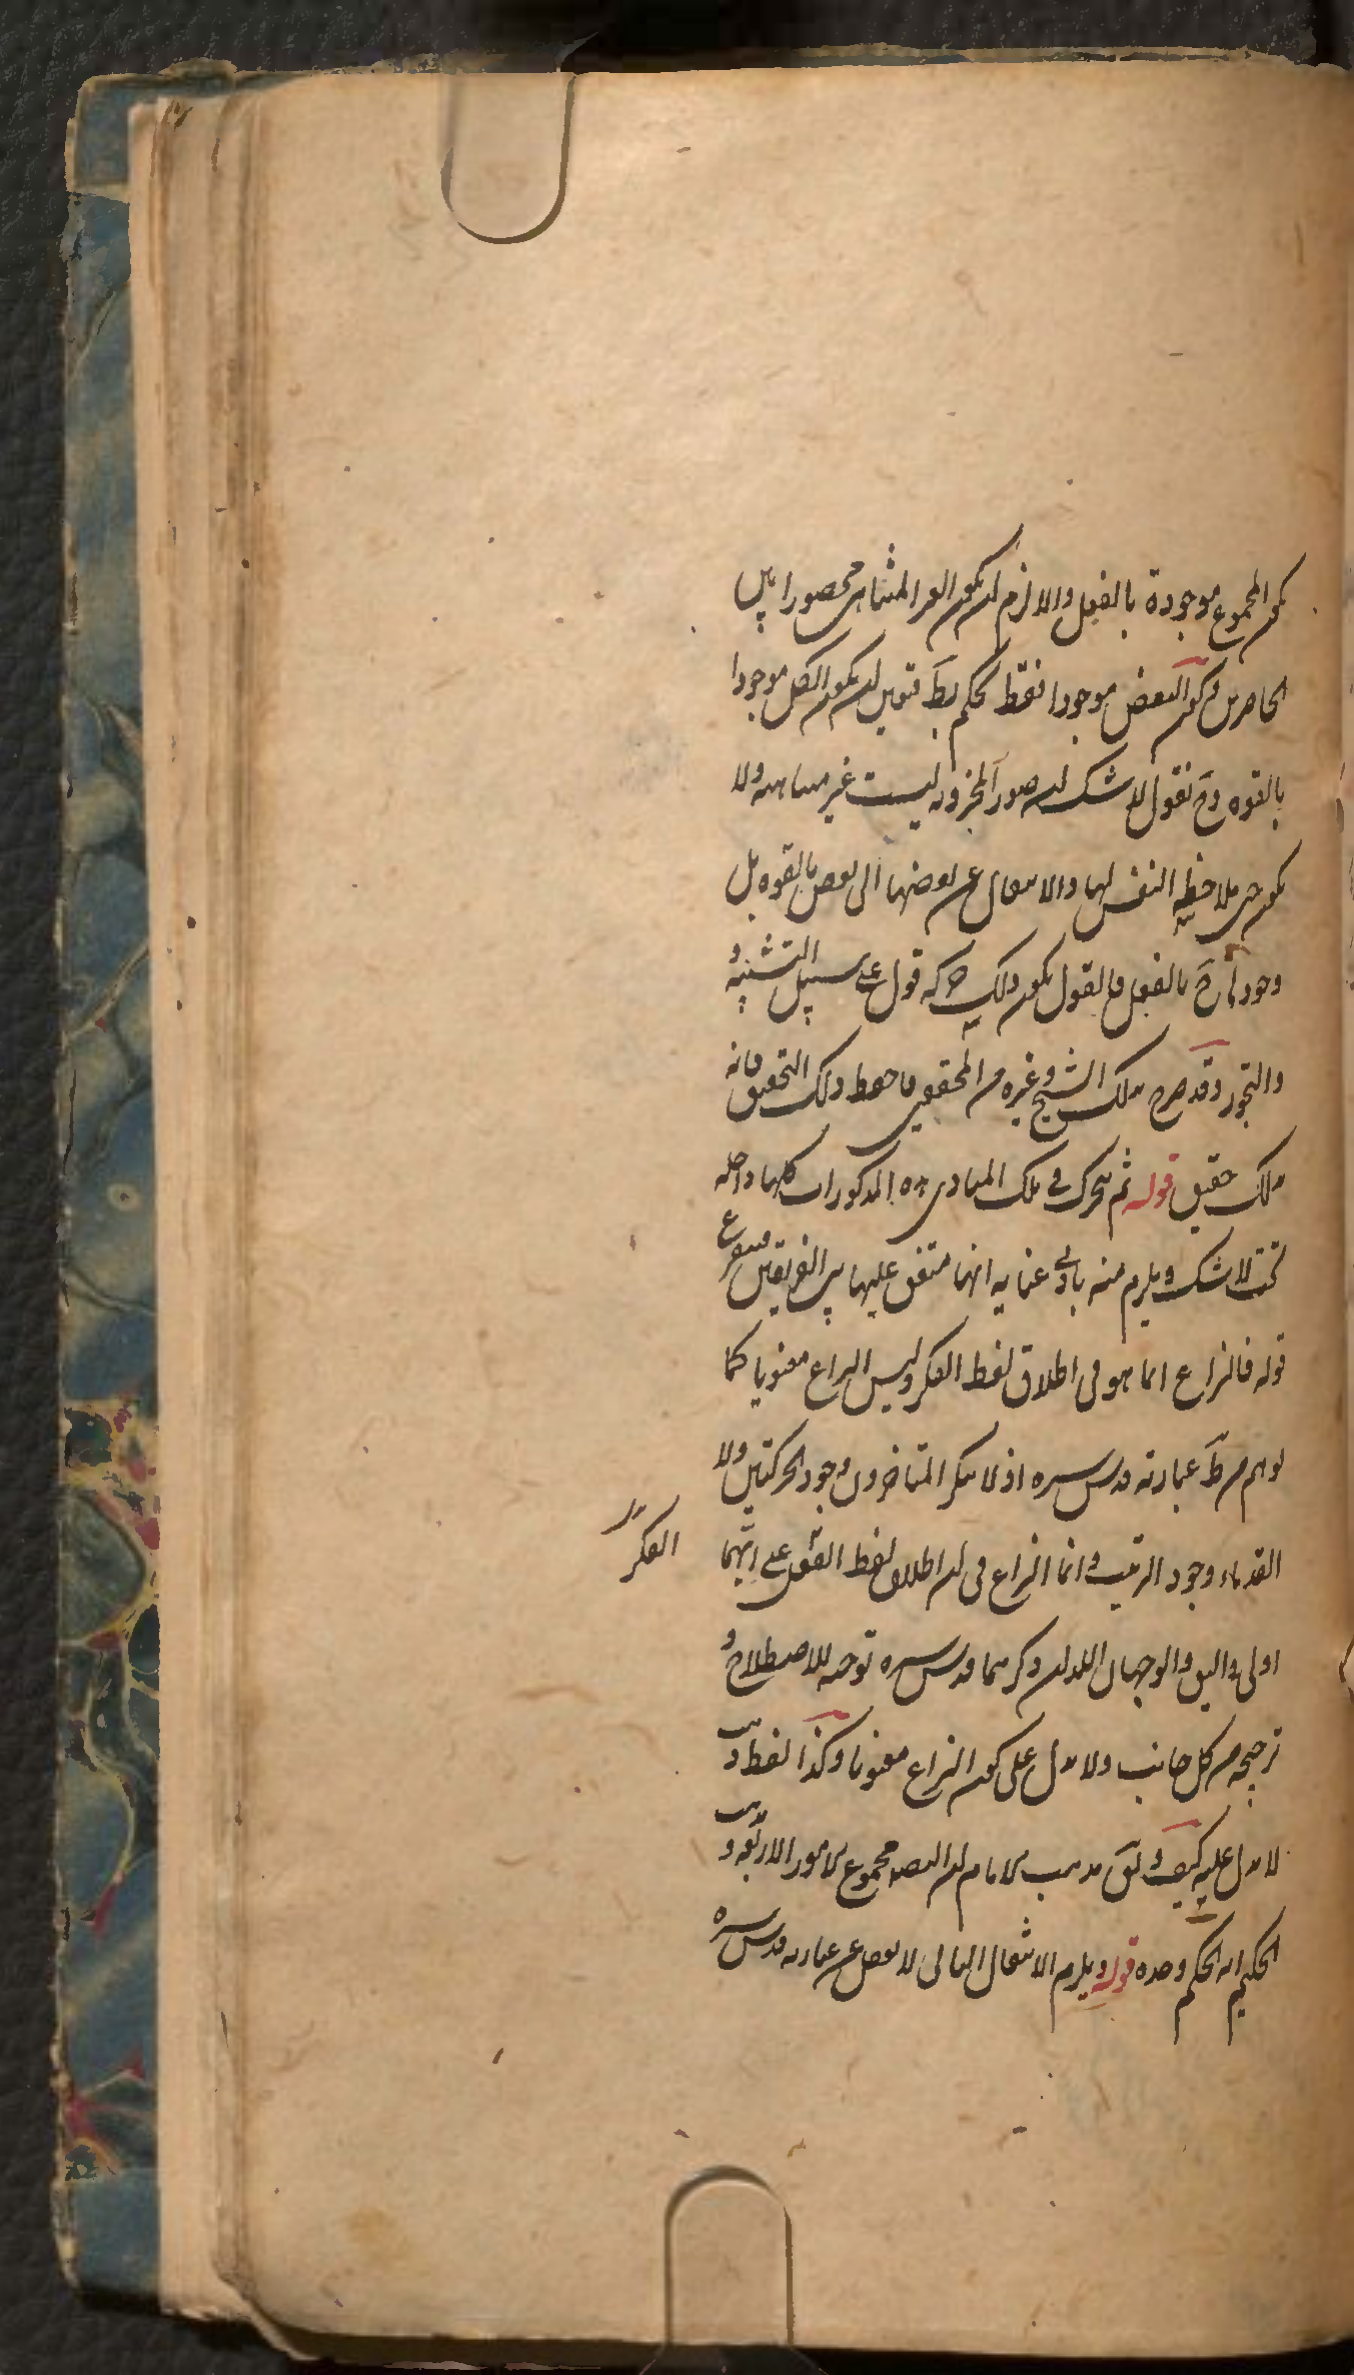 يكون المجموع موجودة بالفعل والا لزم ان يكون الغير المتناهى محصورا بين
الحاصرين وكون البعض موجودا فقط تحكم بط فتعين ان يكون الكل موجودا
بالقوه وح نقول لا شك ان صور المخزونه ليست غير متناهيه ولا
يكون حين ملاحظه النفس لها والانتقال عن بعضها الى بعض بالقوه بل
وجودها ح بالفعل فالقول بكون ذلك حركه قول على سبيل التشبيه و
والتجوز وقد صرح بذلك الشيخ وغيره من المحققين فاحفظ ذلك التحقيق فانه
بذلك حقيق قوله ثم يتحرك فى تلك المبادى اه المذكورات كلها داخله
تحت لا شك ويلزم منه بادنى عنايه انها متفق عليها بين الفريقين فيتفرع
قوله فالنزاع انما هو فى اطلاق لفظ الفكر وليس النزاع معنويا كما
يوهم من ط عبارته قدس سره اذ لا ينكر المتاخرون وجود الحركتين ولا
القدماء وجود الترتيب وانما النزاع فى ان اطلاق لفظ الفكر على ايهما
الفكر
اولى واليق والوجهان اللذان ذكرهما قدس سره توجيه للاصطلاح و
ترجيحه من كل جانب ولا يدل على كون النزاع معنويا وكذا لفظ مذهب
لا يدل عليه كيف ويق مذهب الامام ان التصديق مجموع الامور الاربعه ومذهب
الحكيم انه الحكم وحده قوله ويلزم الانتقال الثانى لا يفصل عن عبارته قدس سره